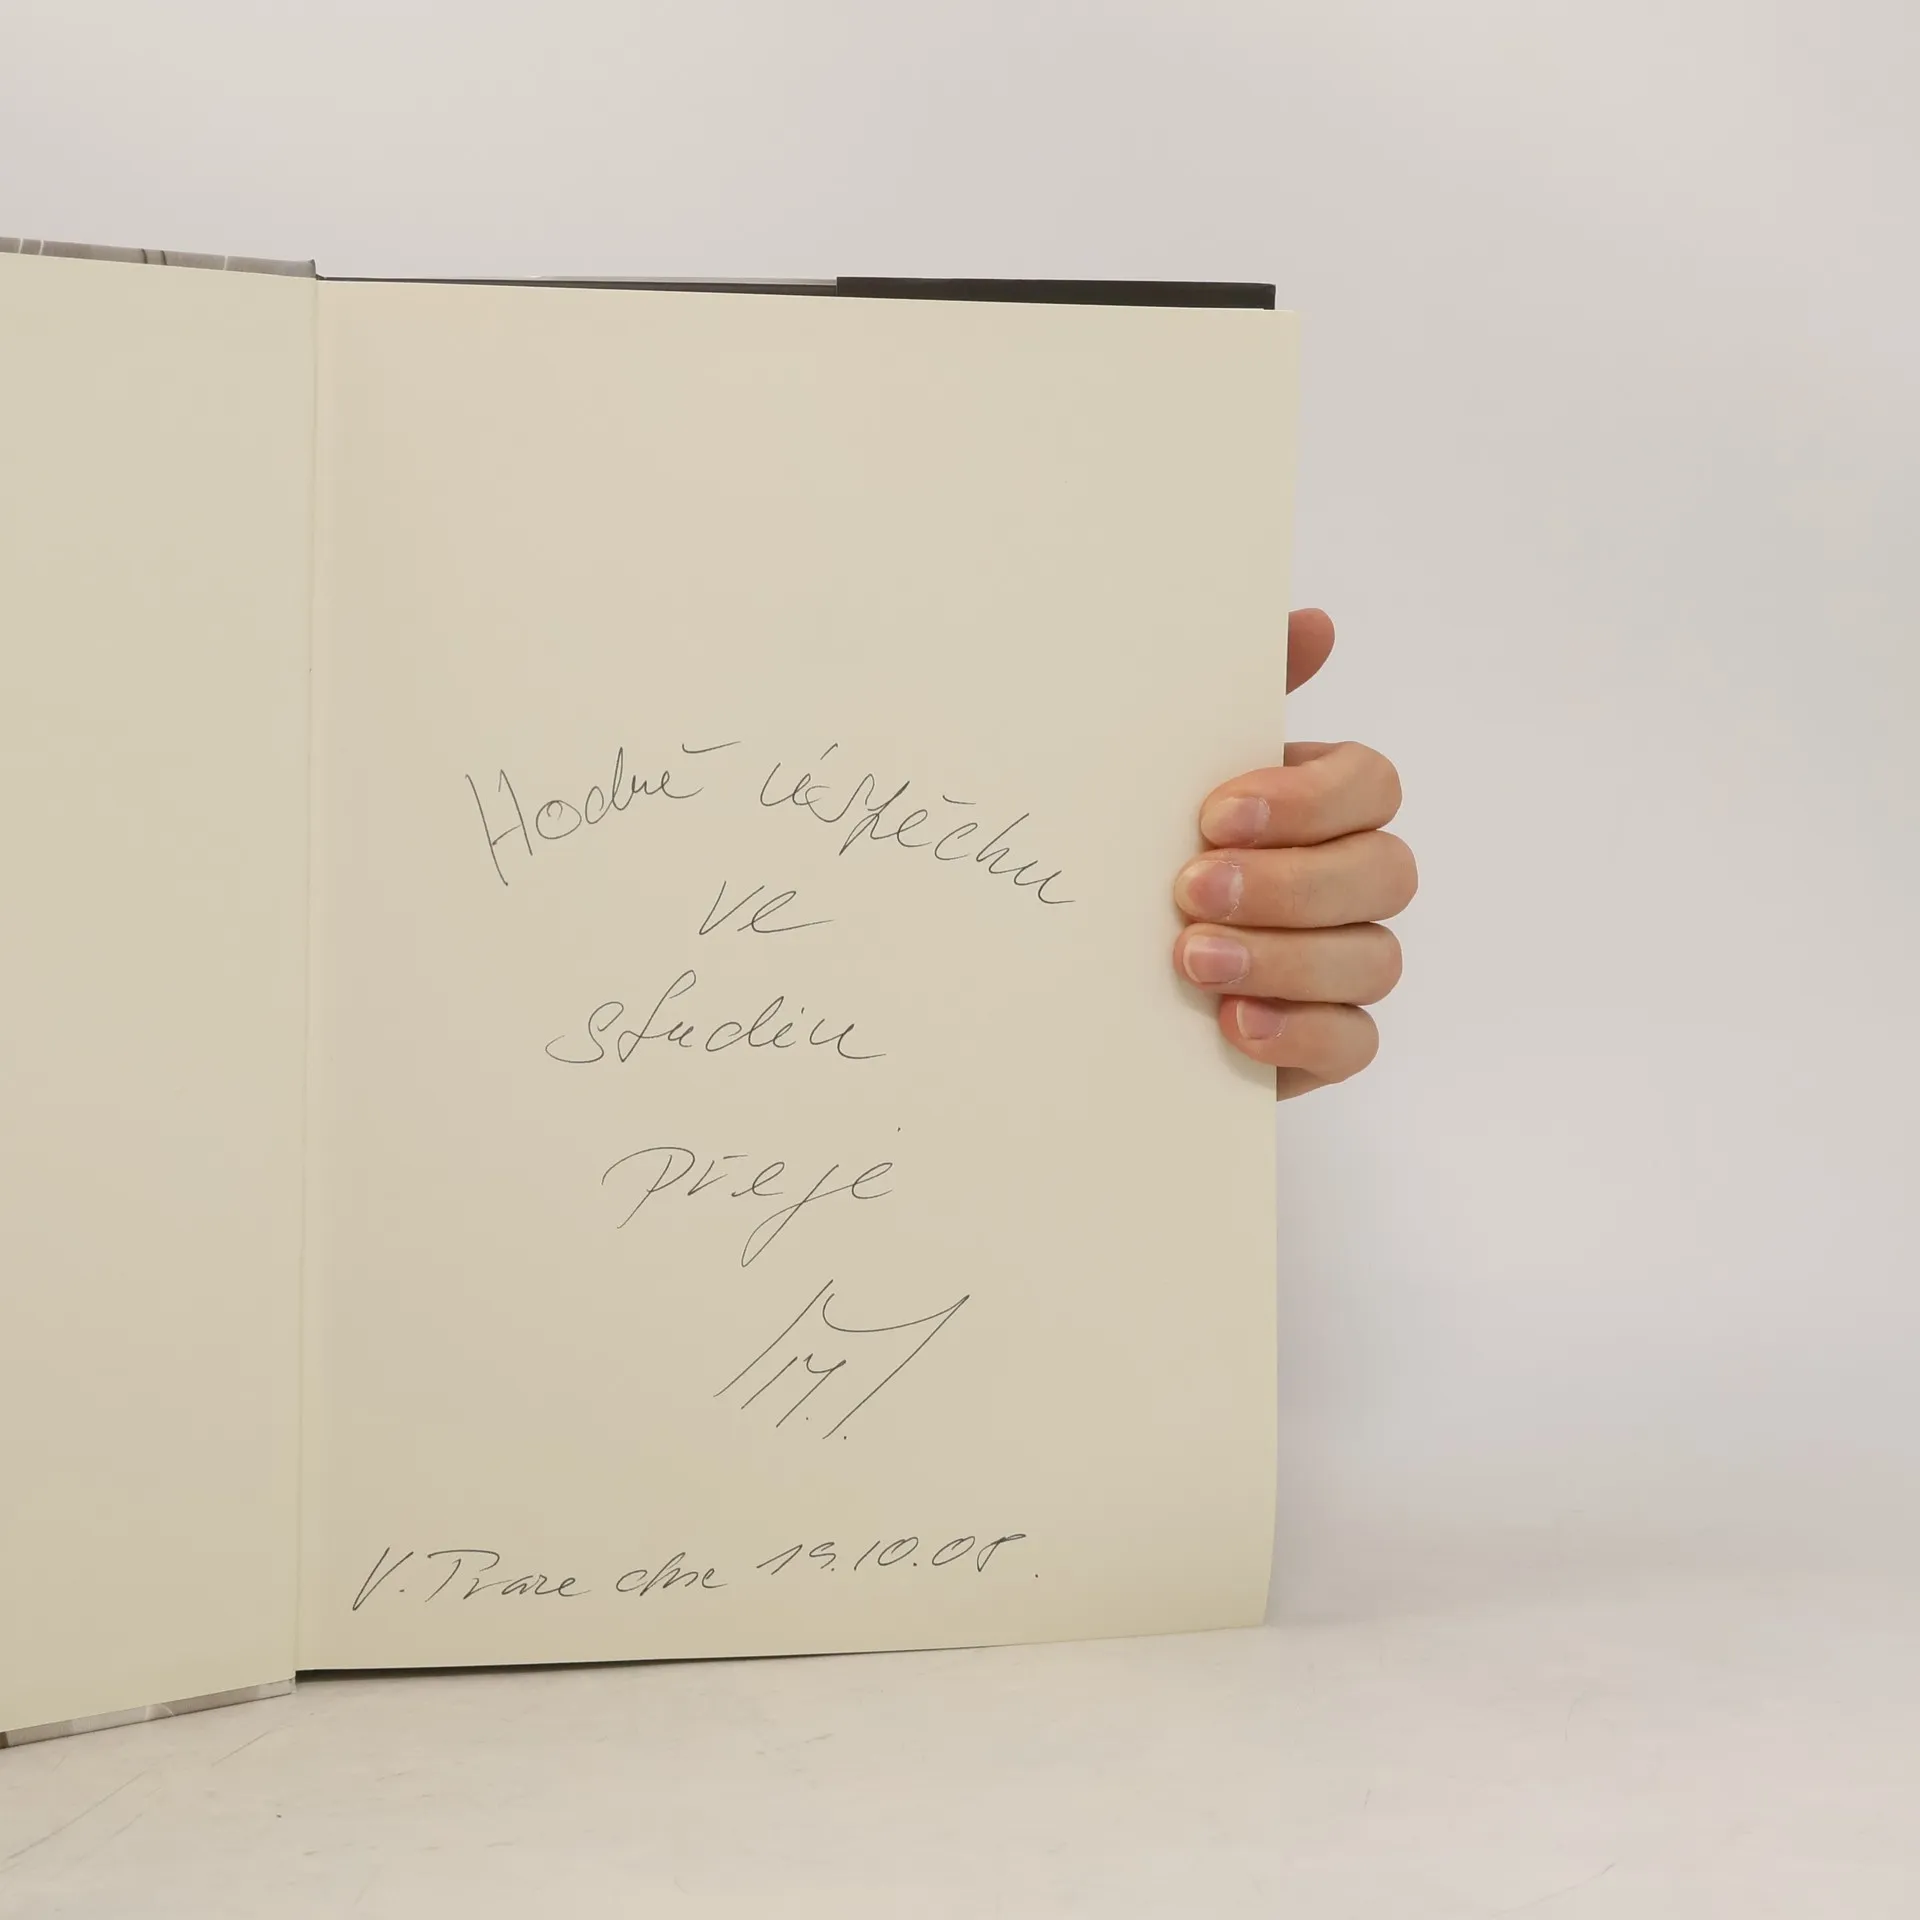 Hodně úspěchu
ve
studiu
přeje
V. Praze dne 19.10.08.